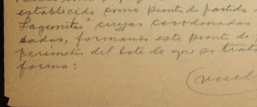 establecido como punto de partida
Lagunitas" cuyas coordenadas
dadas, formando este punto de
perímetro del lote de que se trata
forma: